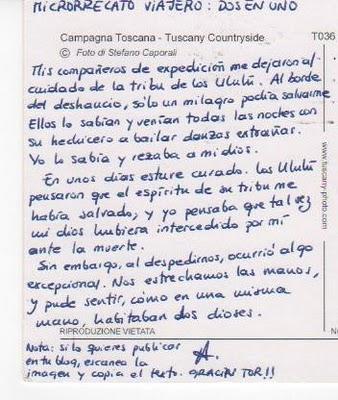 MICRORRELATO VIAJERO: DOS EN UNO
Campagna Toscana - Tuscany Countryside
T036
© Foto di Stefano Caporali
Mis compañeros de expedición me dejaron al
cuidado de la tribu de los Ululú. Al borde
del deshaucio, sólo un milagro podía salvarme
Ellos lo sabían y venían todas las noches con
su hechicero a bailar danzas extrañas.
Yo lo sabía y rezaba a mi dios.
En unos días estuve curado. Los Ululú
pensaron que el espíritu de su tribu me
había salvado, y yo pensaba que tal vez
mi dios hubiera intercedido por mí
ante la muerte.
Sin embargo, al despedirnos, ocurrió algo
excepcional. Nos estrechamos las manos,
y pude sentir, cómo en una misma
mano, habitaban dos dioses.
www.tuscany-photo.com
RIPRODUZIONE VIETATA
Nota: si lo quieres publicar
en tu blog, escanea la
imagen y copia el texto. GRACIAS TOR!!